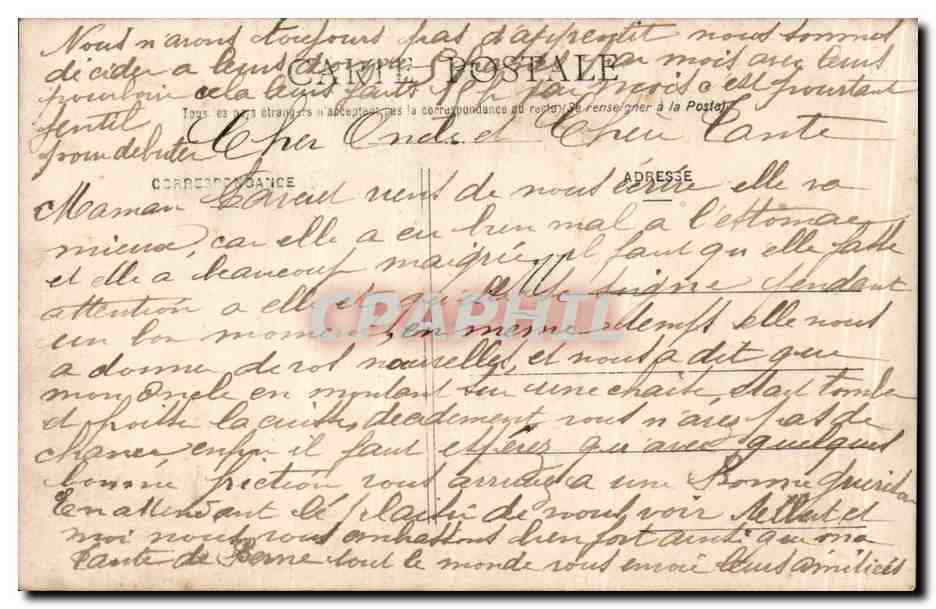 Nous n'avons toujours pas d'apprentit nous sommes
décider a leurs par mois avec leurs
pourboire cela leurs faits par mois c'est pourtant
gentil
pour debuter
CARTE POSTALE
Tous les pays étrangers n'acceptent pas la correspondance au recto (Se renseigner à la Poste)
Cher Oncle et Cher Tante
CORRESPONDANCE
ADRESSE
Maman vient de nous écrire elle va
mieux, car elle a eu bien mal à l'estomac
et elle a beaucoup maigrie, il faut qu'elle fasse
attention a elle et qu'elle se soigne pendant
un bon moment, en même temps elle nous
a donner de vos nouvelles, et nous a dit que
mon oncle en montant sur une chaise, était tombe
et froisse la cuisse, decidement vous n'avez pas de
chance enfin il faut espérez qu'avec quelques
bonne friction vous arrivez a une Bonne guerison
En attendant le plaisir de nous voir et
moi nous vous embrassons bien fort ainsi que ma
tante de Berne tout le monde vous envoie leurs amitiées
CPAPHIL